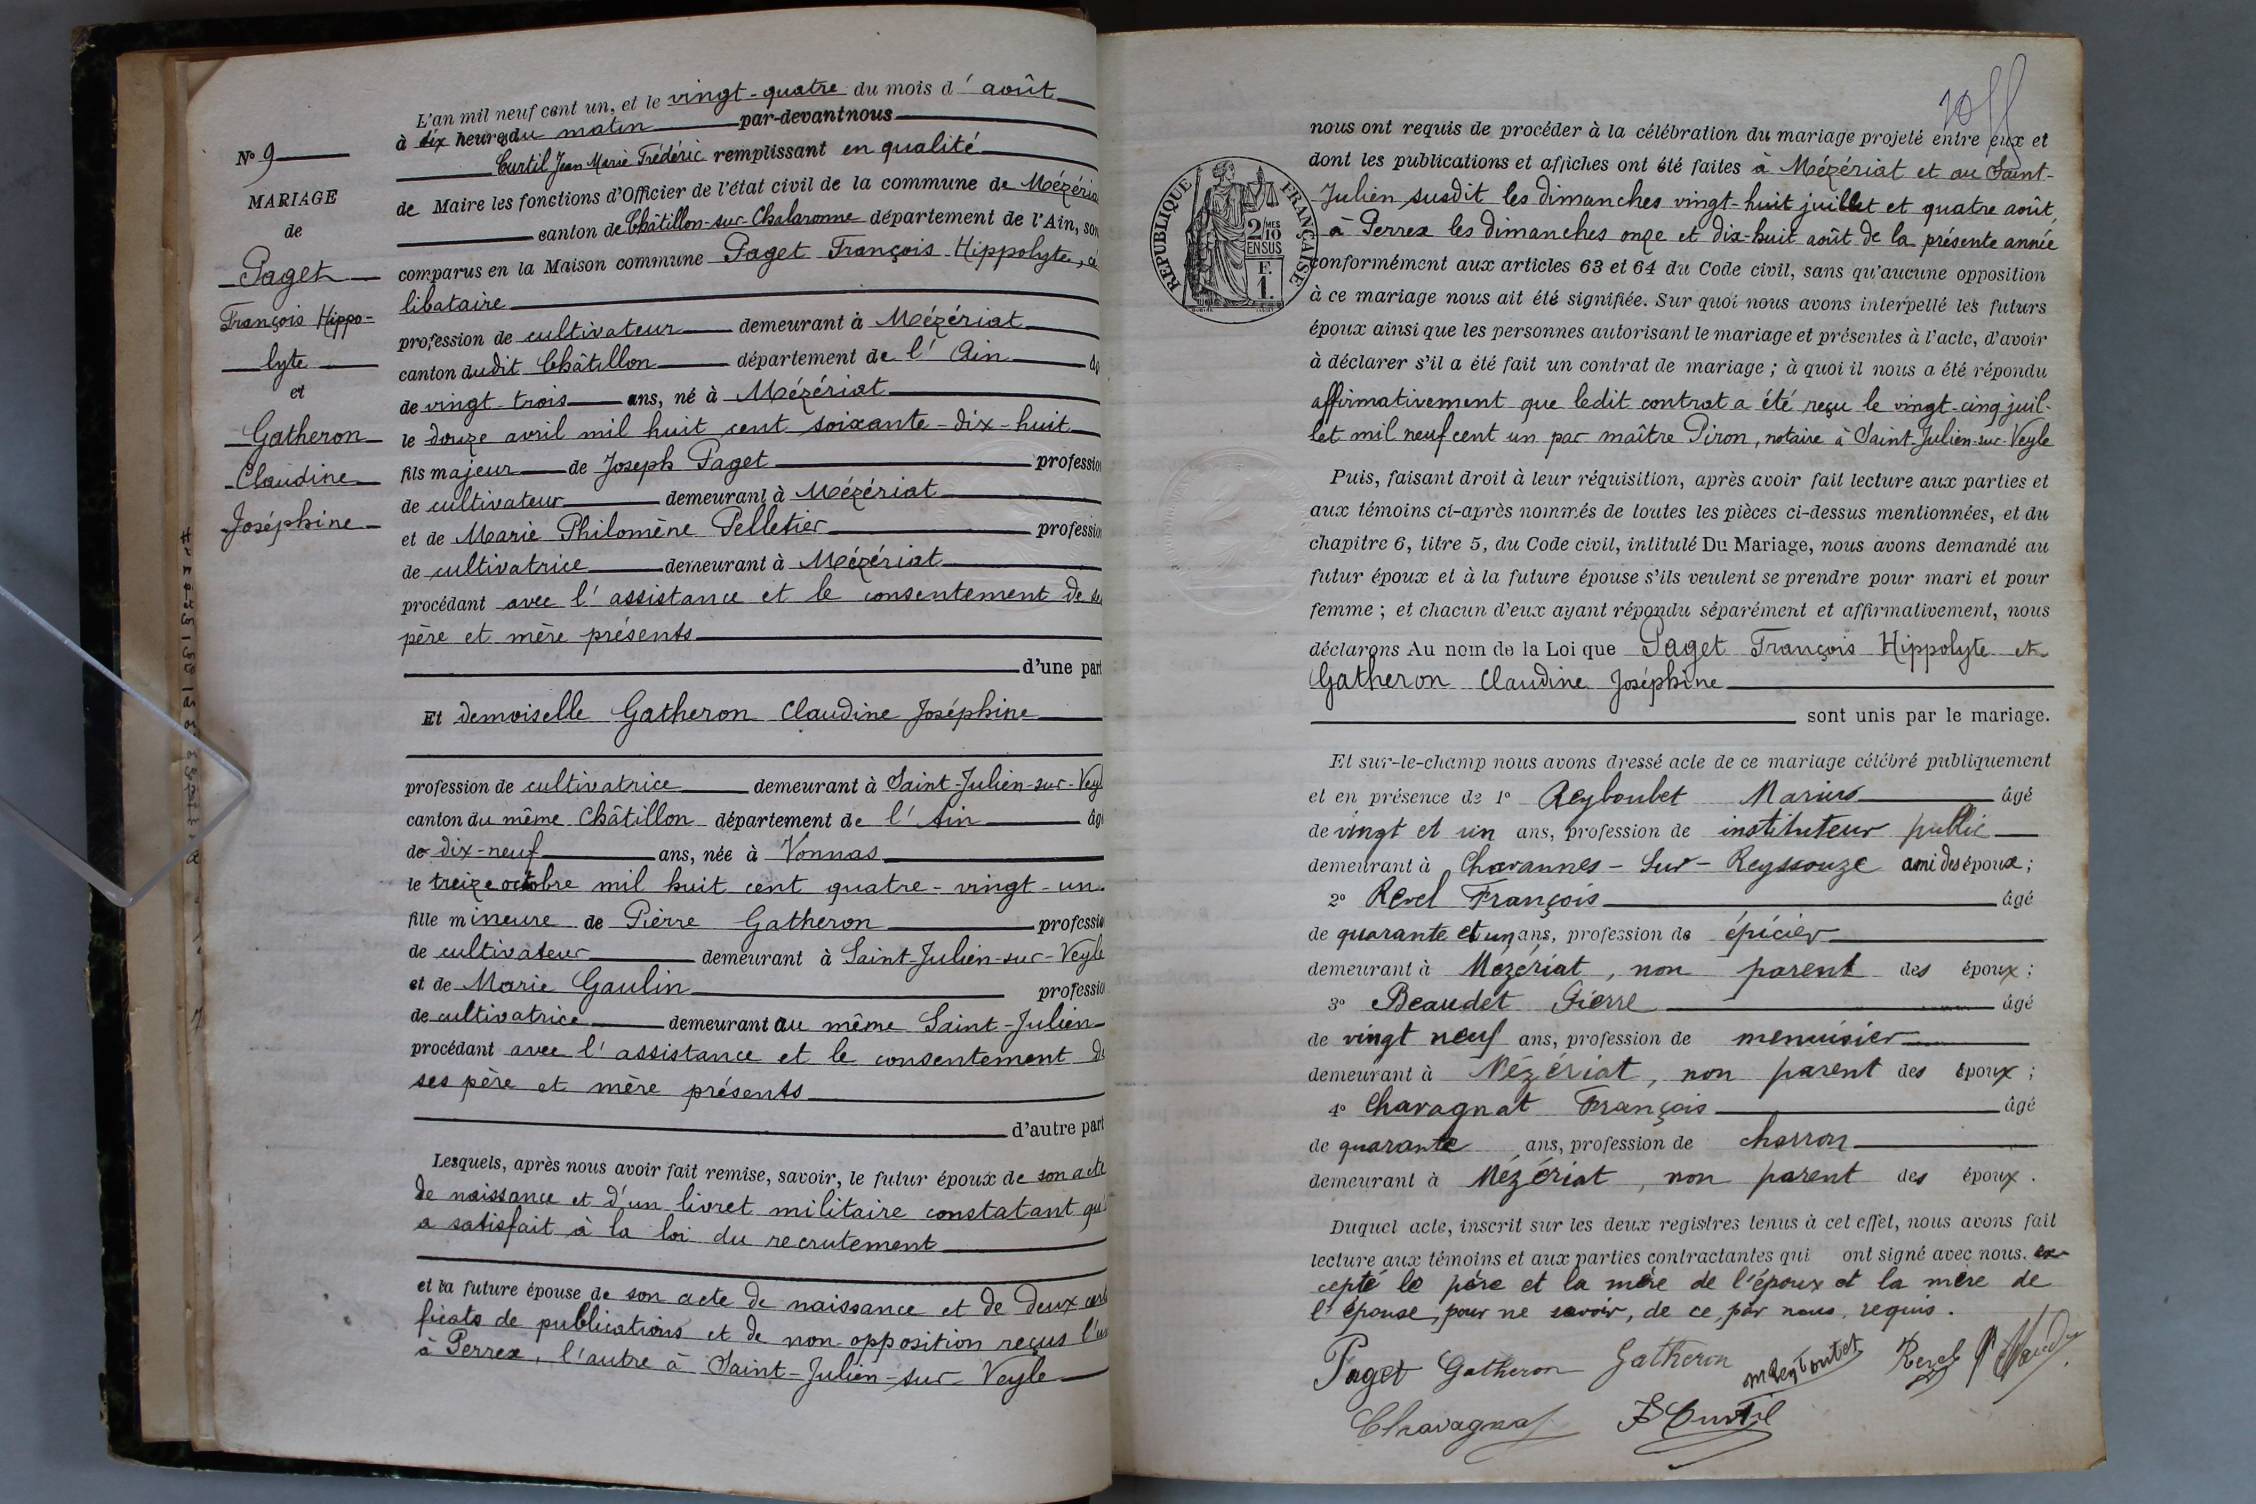 N° 9
MARIAGE
de
Paget
François Hippo-
lyte
et
Gatheron
Claudine
Joséphine
L'an mil neuf cent un, et le vingt-quatre du mois d'août
à dix heures du matin par-devant nous
Curtil Jean Marie Frédéric remplissant en qualité
de Maire les fonctions d'Officier de l'état civil de la commune de Mézéria
canton de Châtillon-sur-Chalaronne département de l'Ain, son
comparus en la Maison commune Paget François Hippolyte, cé
libataire
profession de cultivateur demeurant à Mézériat
canton dudit Châtillon département de l'Ain âg
de vingt-trois ans, né à Mézériat
le douze avril mil huit cent soixante-dix-huit
fils majeur de Joseph Paget profession
de cultivateur demeurant à Mézériat
et de Marie Philomène Pelletier profession
de cultivatrice demeurant à Mézériat
procédant avec l'assistance et le consentement de se
père et mère présents
d'une part
Et demoiselle Gatheron Claudine Joséphine
profession de cultivatrice demeurant à Saint-Julien-sur-Veyl
canton du même Châtillon département de l'Ain âgé
de dix-neuf ans, née à Vonnas
le treize octobre mil huit cent quatre-vingt-un
fille mineure de Pierre Gatheron professio
de cultivateur demeurant à Saint-Julien-sur-Veyle
et de Marie Gaulin professio
de cultivatrice demeurant au même Saint-Julien
procédant avec l'assistance et le consentement de
ses père et mère présents
d'autre part
Lesquels, après nous avoir fait remise, savoir, le futur époux de son acte
de naissance et d'un livret militaire constatant qu'i
a satisfait à la loi du recrutement
et la future épouse de son acte de naissance et de deux certi
ficats de publications et de non-opposition reçus l'un
à Perrex, l'autre à Saint-Julien-sur-Veyle
RÉPUBLIQUE FRANÇAISE
2/MES
10
EN SUS
F.
1.
nous ont requis de procéder à la célébration du mariage projeté entre eux et
dont les publications et affiches ont été faites à Mézériat et au Saint-
Julien susdit les dimanches vingt-huit juillet et quatre août,
à Perrex les dimanches onze et dix-huit août de la présente année
conformément aux articles 63 et 64 du Code civil, sans qu'aucune opposition
à ce mariage nous ait été signifiée. Sur quoi nous avons interpellé les futurs
époux ainsi que les personnes autorisant le mariage et présentes à l'acte, d'avoir
à déclarer s'il a été fait un contrat de mariage ; à quoi il nous a été répondu
affirmativement que ledit contrat a été reçu le vingt-cinq juil-
let mil neuf cent un par maître Piron, notaire à Saint-Julien-sur-Veyle
Puis, faisant droit à leur réquisition, après avoir fait lecture aux parties et
aux témoins ci-après nommés de toutes les pièces ci-dessus mentionnées, et du
chapitre 6, titre 5, du Code civil, intitulé Du Mariage, nous avons demandé au
futur époux et à la future épouse s'ils veulent se prendre pour mari et pour
femme ; et chacun d'eux ayant répondu séparément et affirmativement, nous
déclarons Au nom de la Loi que Paget François Hippolyte et
Gatheron Claudine Joséphine
sont unis par le mariage.
Et sur-le-champ nous avons dressé acte de ce mariage célébré publiquement
et en présence de 1° Reyboubet Marius âgé
de vingt et un ans, profession de instituteur public
demeurant à Chavannes-Sur-Reyssouze ami des époux ;
2° Revel François âgé
de quarante et un ans, profession de épicier
demeurant à Mézériat, non parent des époux ;
3° Beaudet Pierre âgé
de vingt neuf ans, profession de menuisier
demeurant à Mézériat, non parent des époux ;
4° Chavagnat François âgé
de quarante ans, profession de charron
demeurant à Mézériat, non parent des époux.
Duquel acte, inscrit sur les deux registres tenus à cet effet, nous avons fait
lecture aux témoins et aux parties contractantes qui ont signé avec nous. ex-
cepté le père et la mère de l'époux et la mère de
l'épouse, pour ne savoir, de ce, par nous, requis.
Paget Gatheron Gatheron Revel
Chavagnat Curtil